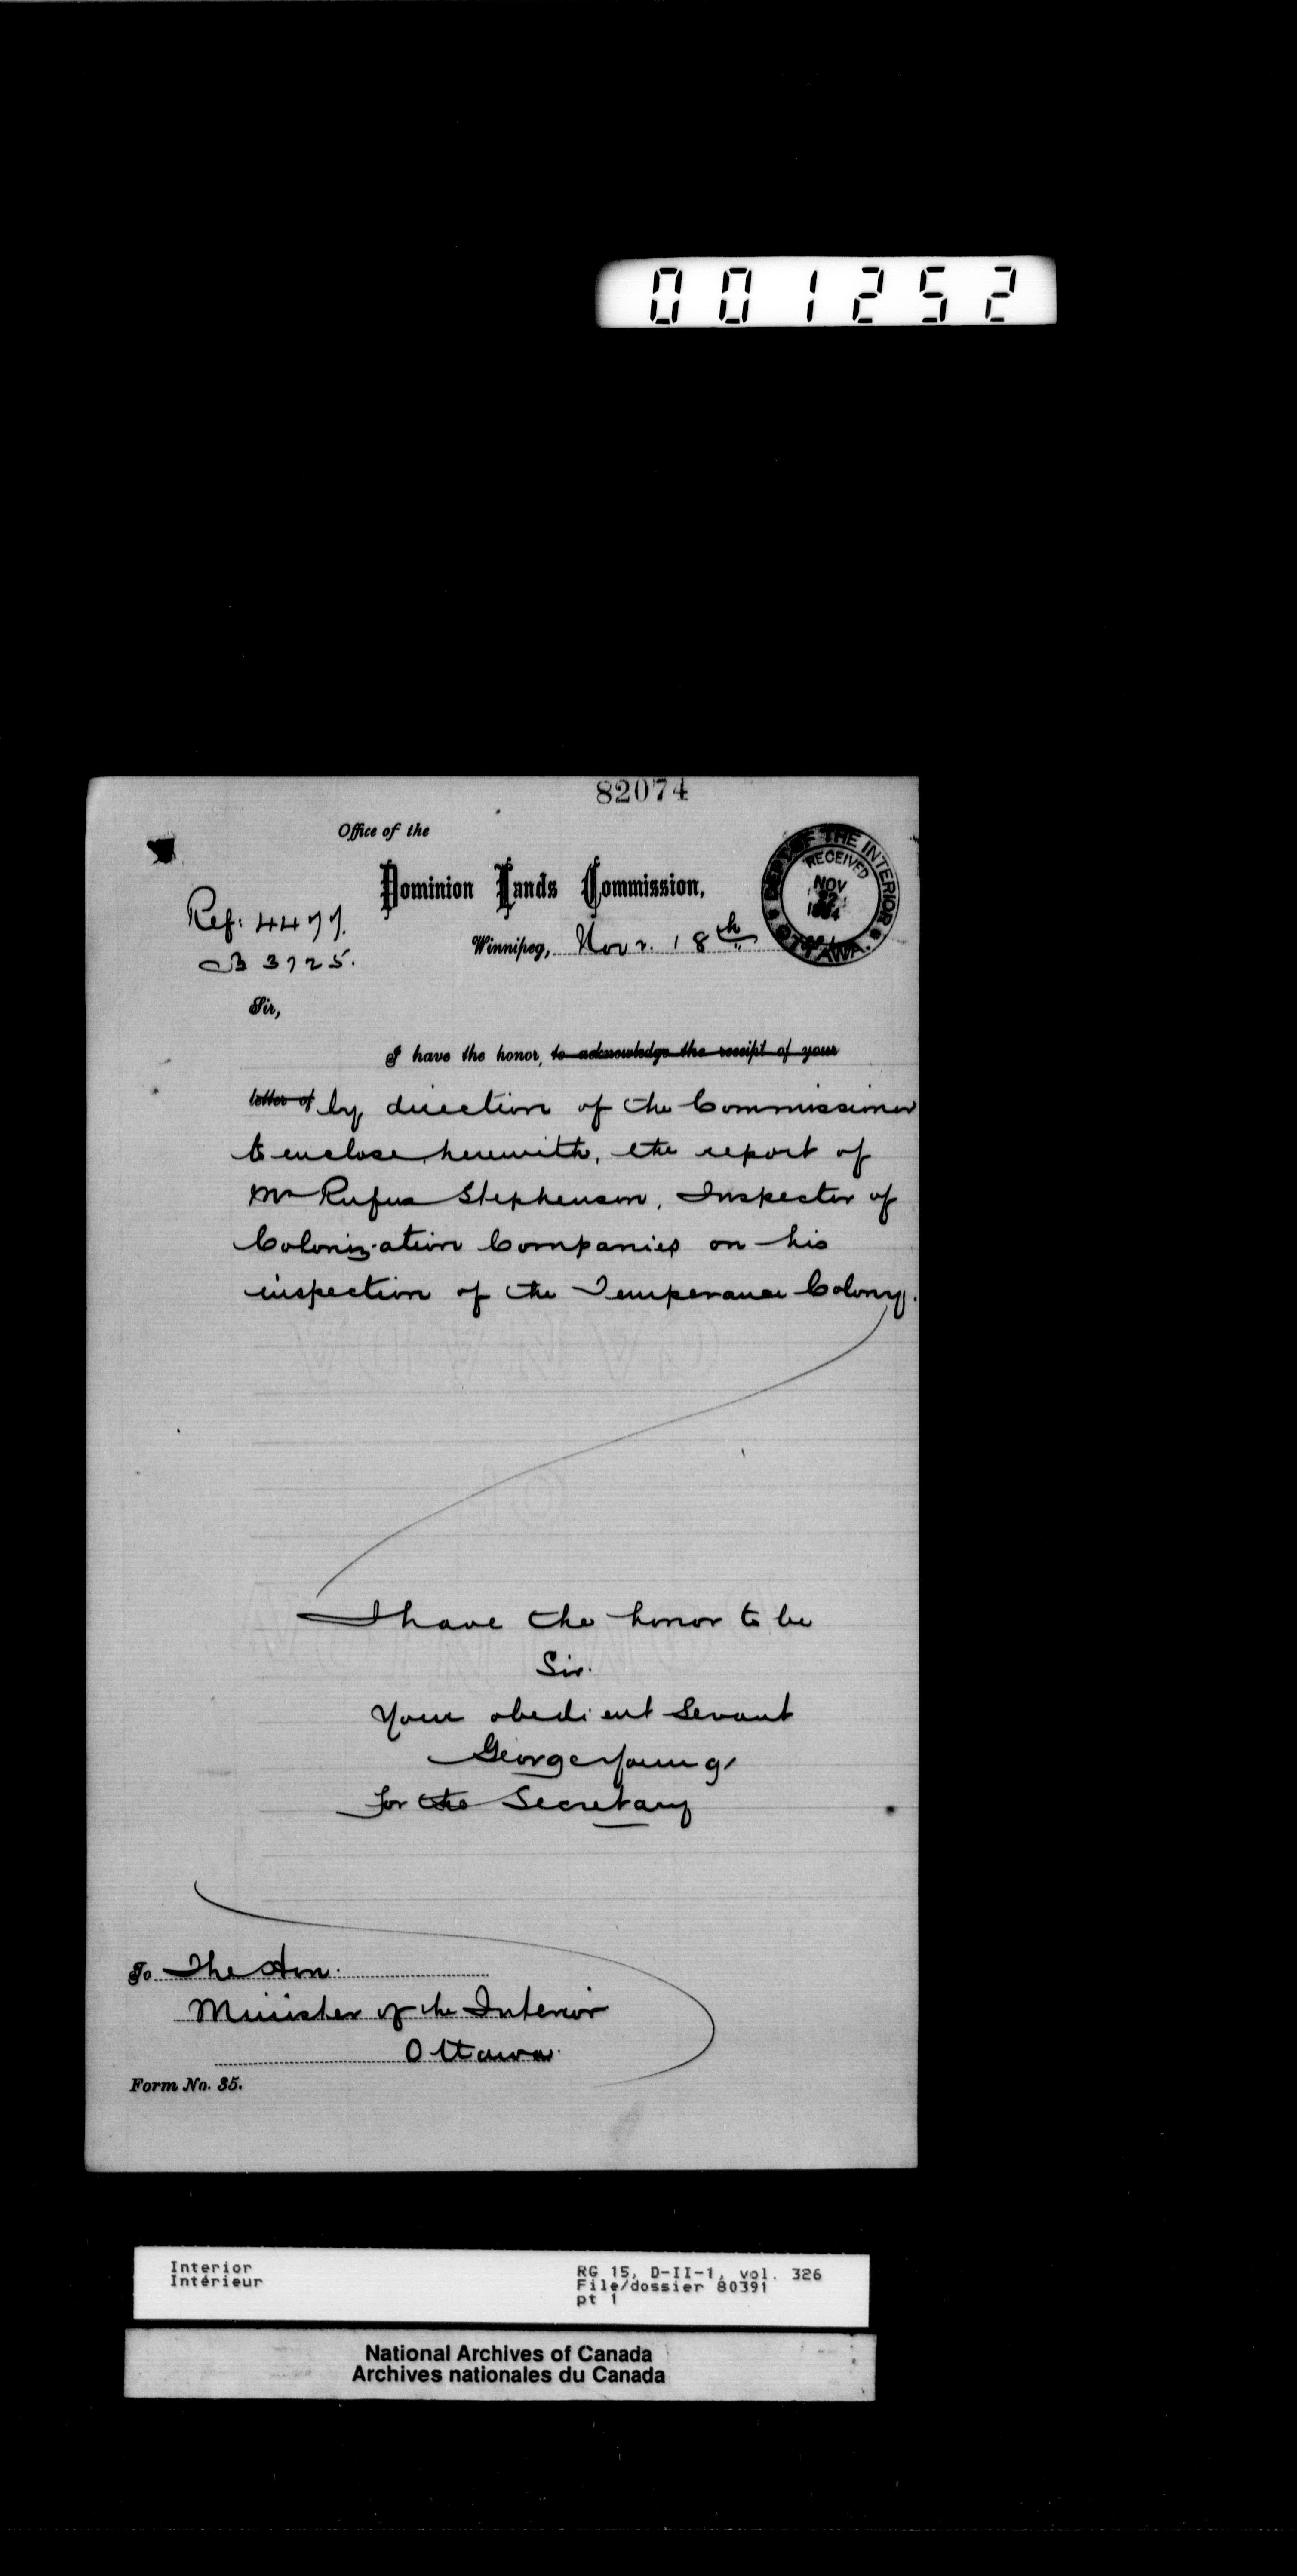 001252
82074
Office of the
Dominion Lands Commission,
DEPT OF THE INTERIOR
RECEIVED
NOV
22
1884
OTTAWA.
Ref: 4477.
B 3725.
Winnipeg, Nov r. 18th
Sir,
I have the honor, to acknowledge the receipt of your
letter of by direction of the Commissioner
to enclose, herewith, the report of
Mr Rufus Stephenson, Inspector of
Colonization Companies on his
inspection of the Temperance Colony.
CANADA
OF
I have the honor to be
Sir.
Your obedient Servant
George Young
for the Secretary
To The Hon.
Minister of the Interior
Ottawa.
Form No. 35.
Interior
Intérieur
RG 15, D-II-1, vol. 326
File/dossier 80391
pt 1
National Archives of Canada
Archives nationales du Canada